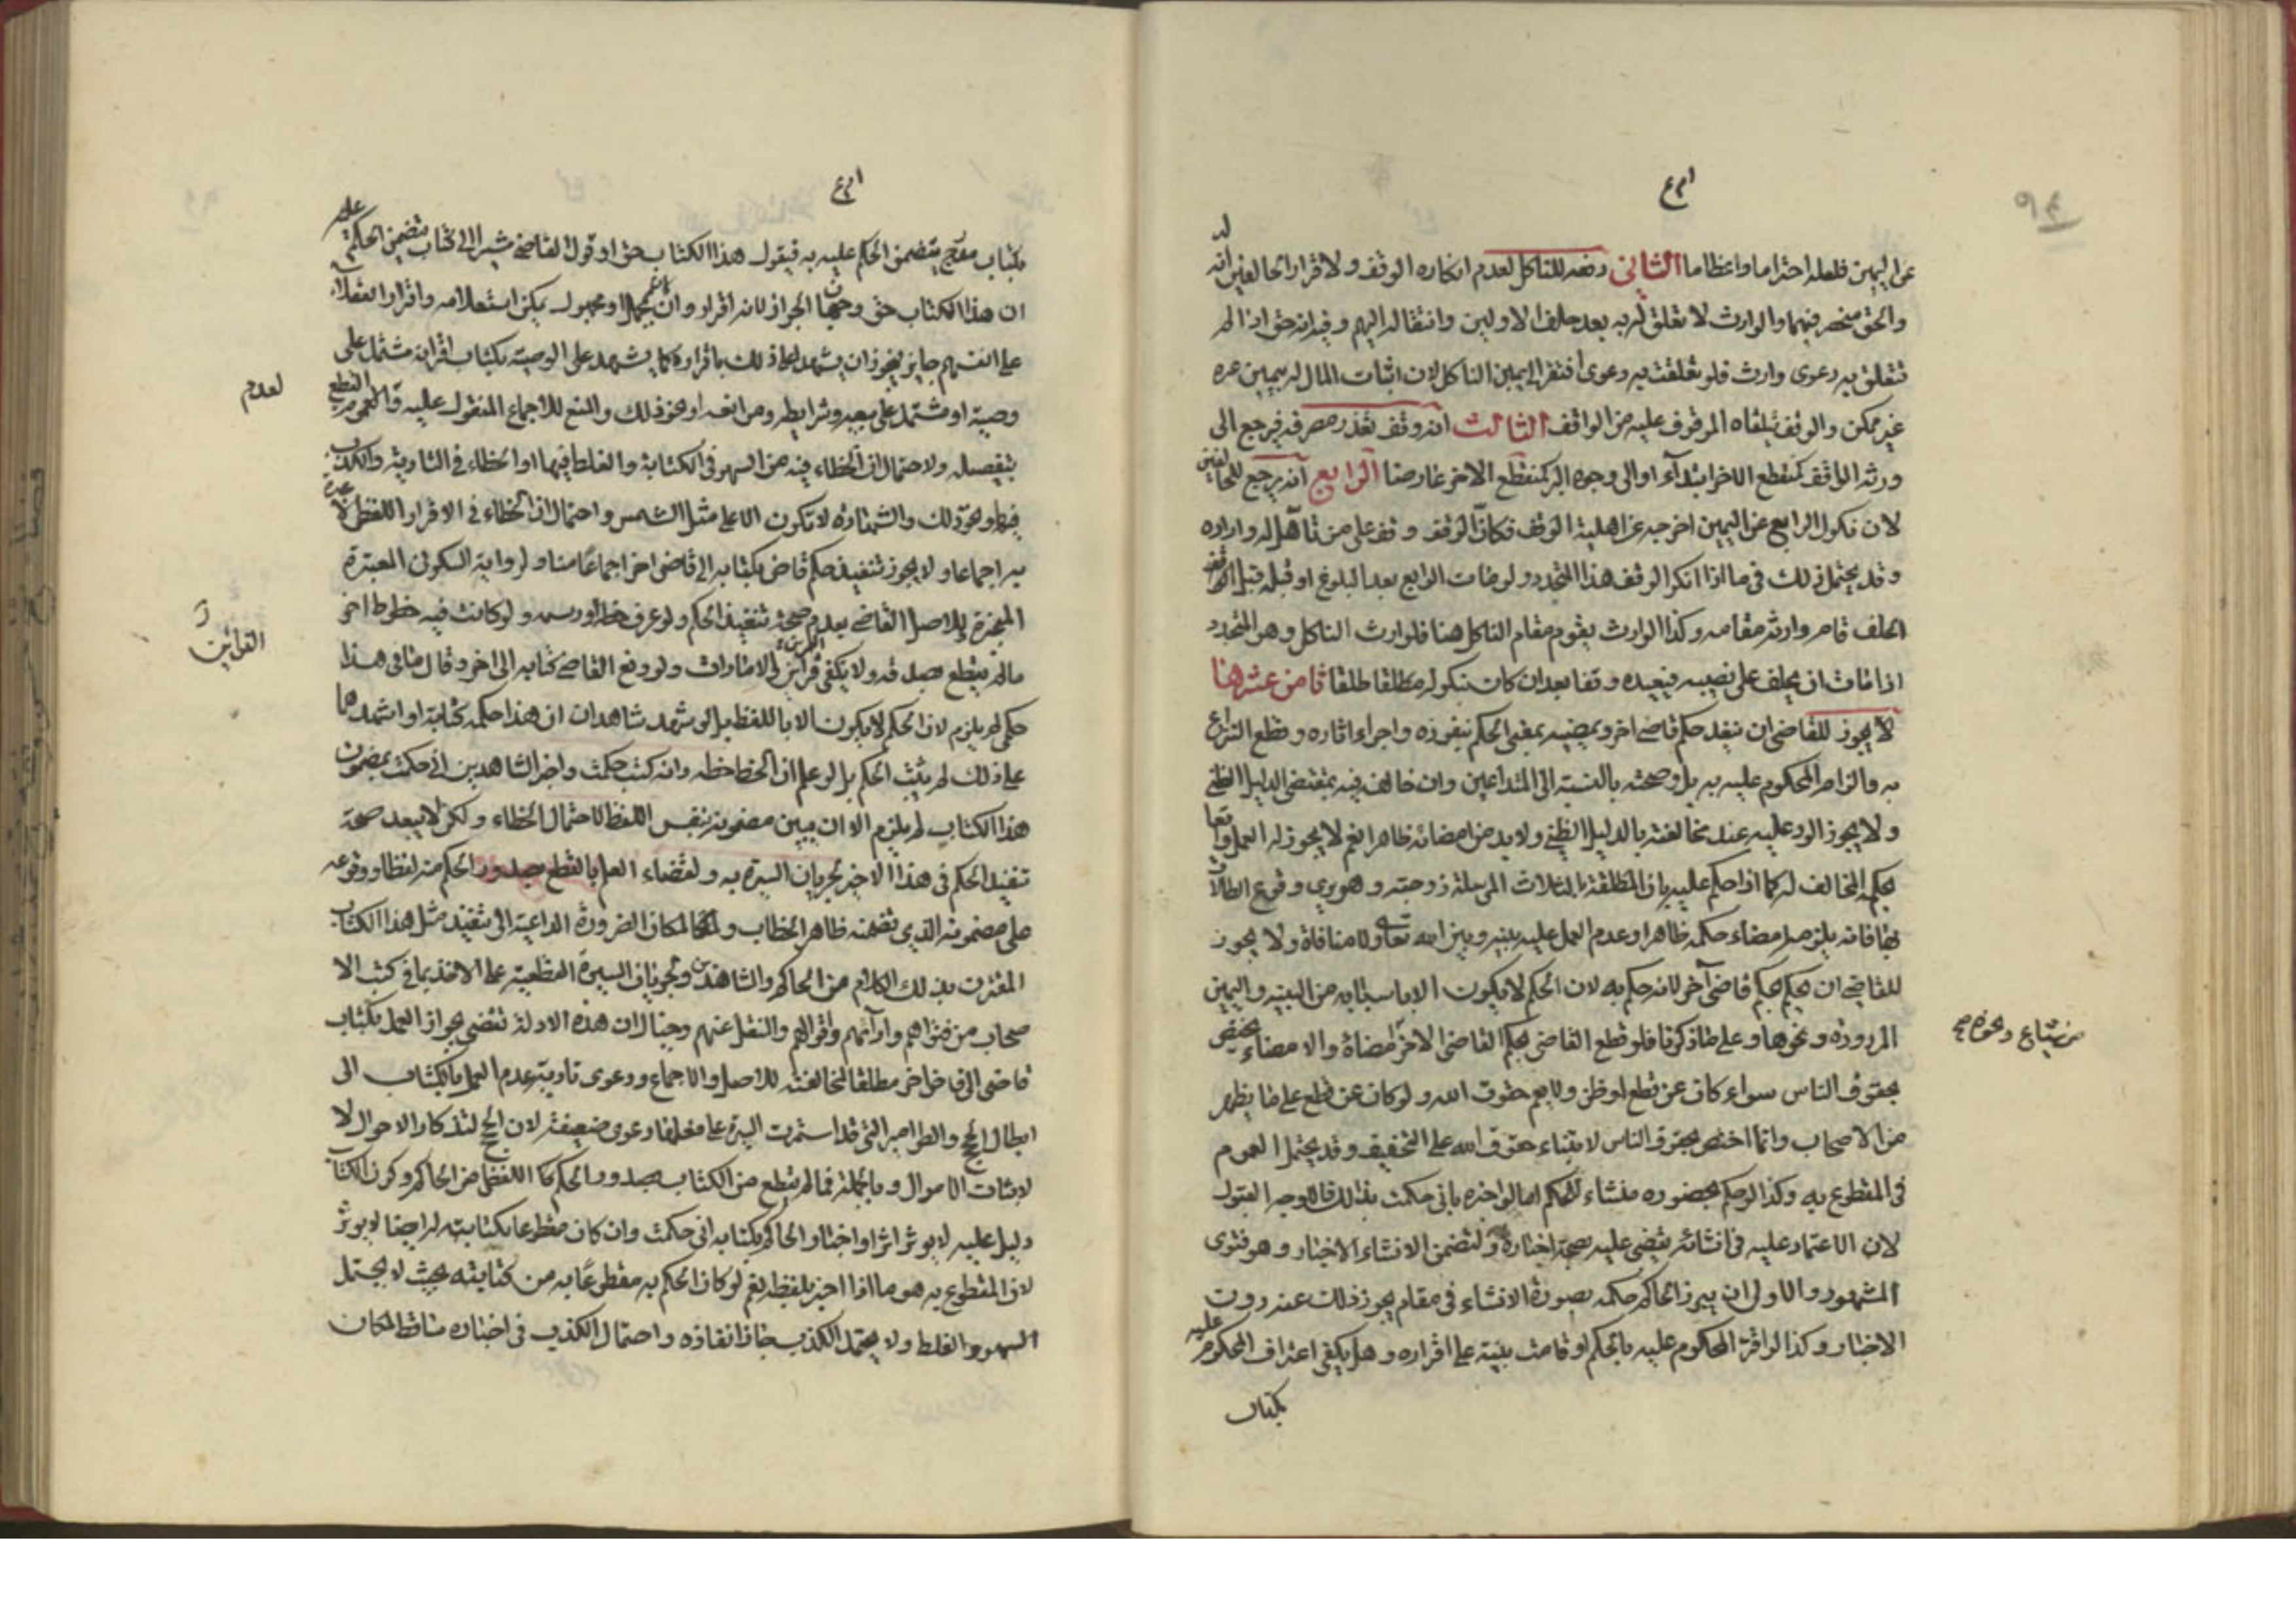 عن اليمين فلعله احتراما واعظاما الثانى دفعه للناكل لعدم انكاره الوقف ولاقرار الحالفين انه له
والحق منحصر فيهما والوارث لا تعلق له به بعد حلف الاولين وانتقاله اليهم وفيه انه حق اذا لم
تتعلق به دعوى وارث فلو تعلقت به دعوى افتقر الى يمين الناكل لان اثبات المال له بيمين غيره
غير ممكن والوقف يتلقاه الموقوف عليه من الواقف الثالث انه وقف تعذر مصرفه فيرجع الى
ورثه الواقف كمنقطع الاخر ابتداء او الى وجوه البر كمنقطع الاخر عارضا الرابع انه يرجع للحالفين
لان نكول الرابع عن اليمين اخرجه عن اهلية الوقف فكان الوقف وقف على من تأهل له واراده
وقد يحتمل ذلك فى ما اذا انكر الوقف هذا المتجدد ولو مات الرابع بعد البلوغ او قبله قبل
الحلف قام وارثه مقامه وكذا الوارث يقوم مقام الناكل هنا فلوارث الناكل وهو المتجدد
اذا مات ان يحلف على نصيبه فيعيده وقفا بعد ان كان بنكوله مطلقا طلقا ثامن عشرها
لا يجوز للقاضى ان ينفذ حكم قاضى اخر ويمضيه بمعنى الحكم بنفوذه واجراء اثاره وقطع النزاع
به والزام المحكوم عليه به بل وصحته بالنسبة الى المتداعين وان خالف فيه بمقتضى الدليل الظنى
ولا يجوز الرد عليه عند مخالفته بالدليل الظنى ولا بد من امضائه ظاهرا نعم لا يجوز له العمل واقعا
بحكمه المخالف له كما اذا حكم عليه بان المطلقة بالثلاث المرسلة زوجته وهو يرى وقوع الطلاق
بها فانه يلزمه امضاء حكمه ظاهرا وعدم العمل عليه بينه وبين الله تعالى ولا منافاة ولا يجوز
للقاضى ان يحكم بحكم قاضى آخر لانه حكم به لان الحكم لا يكون الا باسبابه من البينه واليمين
المردودة ونحوها وعلى ما ذكرنا فلو قطع القاضى بحكم القاضى الاخر امضاه والامضاء يختص
بحقوق الناس سواء كان عن قطع او ظن ولا يعم حقوق الله ولو كان عن قطع على ما يظهر
من الاصحاب وانما اختص بحقوق الناس لابتناء حقوق الله على التخفيف وقد يحتمل العموم
فى المقطوع به وكذا لو حكم بحضوره منشاء للحكم اما لو اخبره بانى حكمت بذلك فالاوجه القبول
لان الاعتماد عليه فى انشائه يقضى عليه بصحة اخباره ولتضمن الانشاء الاخبار وهو فتوى
المشهور والاولى ان يبرز الحاكم حكمه بصورة الانشاء فى مقام يجوز ذلك عنه دون
الاخبار وكذا لو اقر المحكوم عليه بالحكم او قامت بينة على اقراره وهل يكفى اعتراف المحكوم عليه
بكتاب
بكتاب يتضمن الحكم عليه به فيقول هذا الكتاب حق او قول القاضى مشيرا الى كتاب يتضمن الحكم عليه
ان هذا الكتاب حق وجهان الجواز لانه اقرار وان مجملا او مجهول يمكن استعلامه واقرار العقلاء
على انفسهم جايز فيجوز ان يشهد على ذلك باقراره كما يشهد على الوصية بكتاب اقر انه مشتمل على
وصية او مشتمل على بيعه وشرايطه ومرابعه او نحو ذلك والمنع للاجماع المنقول عليه
بتفصيله ولاحتمال ان الخطاء فيه من السهو فى الكتابة والغلط فيها او الخطاء فى التادية والكذب
فيها ونحو ذلك والشهادة لا تكون الا على مثل الشمس واحتمال ان الخطاء فى الاقرار اللفظى لا عبرة
به اجماعا ولا يجوز تنفيذ حكم قاض بكتابه الى قاضى اخر اجماعا منا ولرواية السكونى المعتبرة
المنجبرة وللاصل القاضى بعدم صحة تنفيذ الحكم ولو عرف خطه ورسمه ولو كانت فيه خطوط اخر
ما لم يقطع بصدقه ولا يكفى قرائن الامارات ولو دفع القاضى كتابه الى اخر وقال ما فى هذا
حكمى لم يلزم لان الحكم لا يكون الا باللفظ بل لو شهد شاهدان ان هذا حكمه كتابة او اشهدهما
على ذلك لم يثبت الحكم بل لو علم ان الخط خطه وانه كتب حكمت واخبر الشاهدين انى حكمت بمضمون
هذا الكتاب لم يلزم الا ان يبين مضمونه بنفس اللفظ لاحتمال الخطاء ولكن لا يبعد صحة
تنفيذ الحكم فى هذا الاخير لجريان السيرة به ولقضاء العلم بالقطع بصدور الحكم منه لفظا ووقوعه
على مضمونه الذى تضمنه ظاهر الخطاب ولمكان الضرورة الداعية الى تنفيذ مثل هذا الكتاب
المقترن بذلك الكلام من الحاكم والشاهدين ولجريان السيرة القطعية على الاخذ بما فى كتب الا
صحاب من فتواهم وارآئهم واقوالهم والنقل عنهم وخيال ان هذه الادلة تقضى بجواز العمل بكتاب
قاضى الى قاض اخر مطلقا لمخالفته للاصل والاجماع ودعوى تادية عدم العمل بالكتاب الى
ابطال الحجج والطوامير التى قد استمرت السيرة على دعوى ضعيفة لان الحجج لتذكار الاحوال لا
لاثبات الاموال وبالجملة فما لم يقطع من الكتاب بصدور الحكم اللفظى من الحاكم وكون الكتاب
دليل عليه لا يوثر اثرا واخبار الحاكم بكتابه انى حكمت وان كان مقطوعا بكتابيته له ايضا لا يوثر
لان المقطوع به هو ما اذا اخبر بلفظه نعم لو كان الحكم به مقطوعا به من كتابته بحيث لا يحتمل
السهو والغلط ولا يحتمل الكذب جاز انفاذه واحتمال الكذب فى اخباره ساقط لمكان
لعدم
القرائن